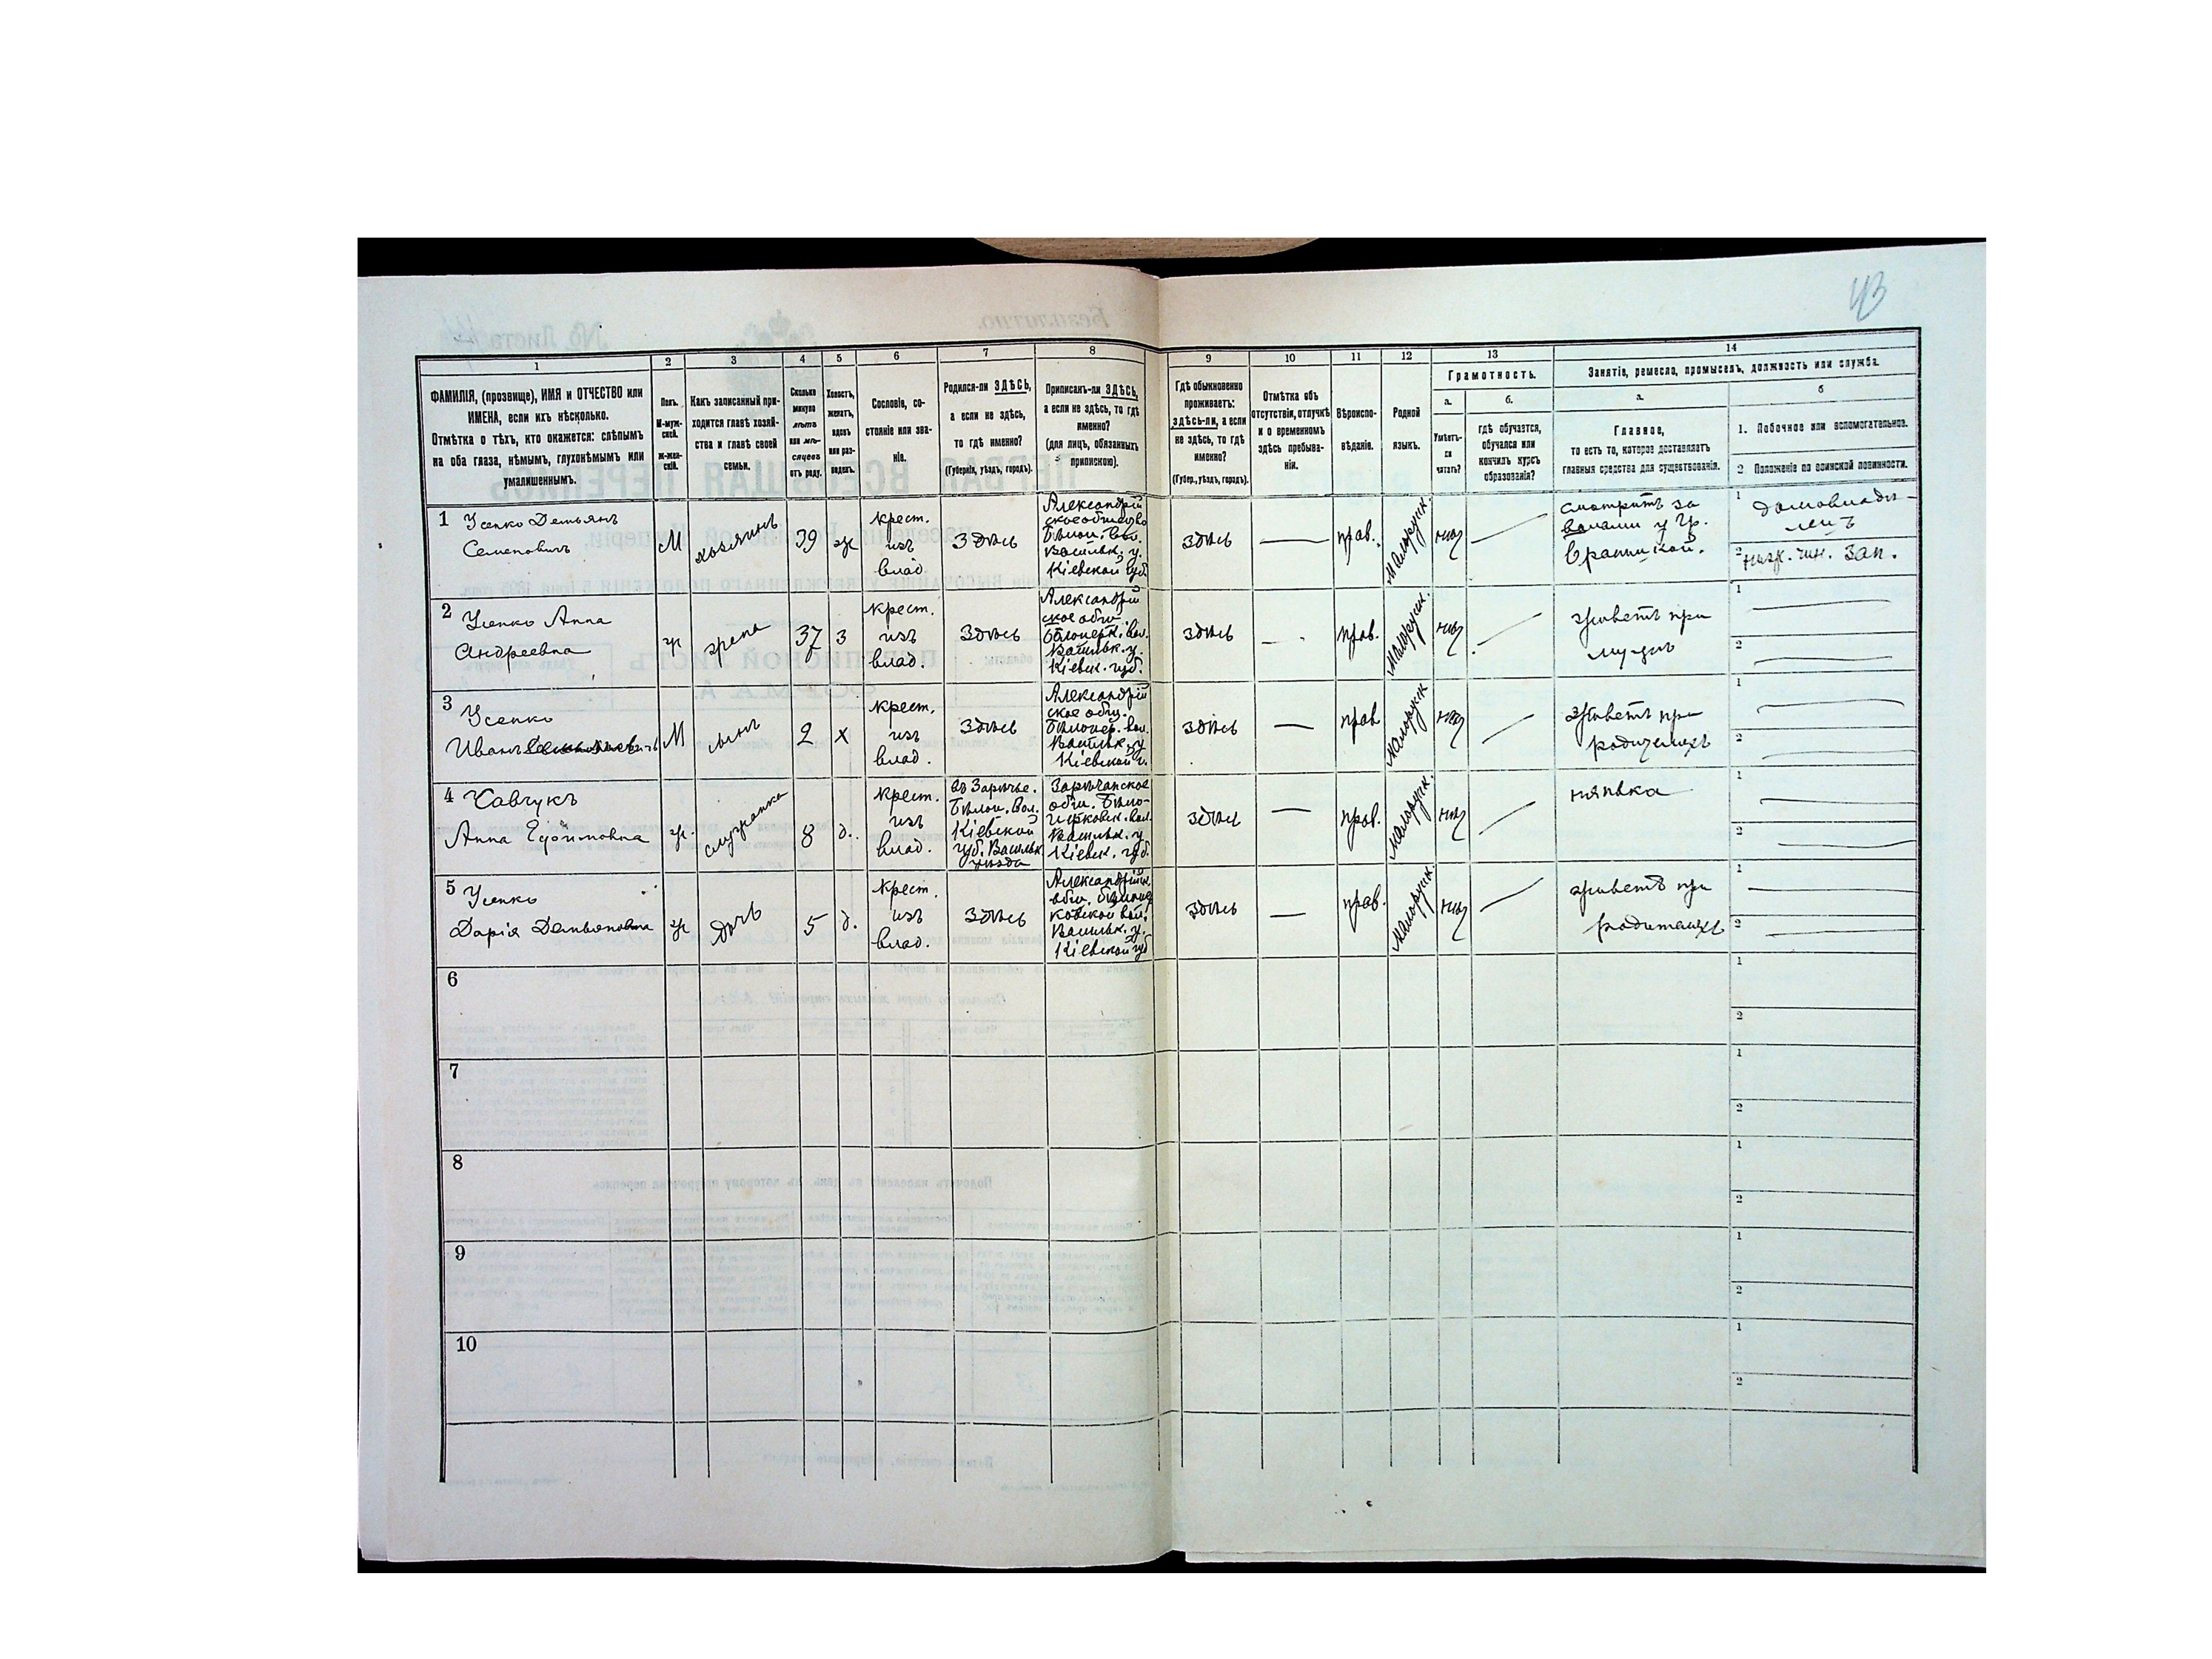 43
1
2
3
4
5
6
7
8
9
10
11
12
13
14
ФАМИЛІЯ, (прозвище), ИМЯ и ОТЧЕСТВО или
ИМЕНА, если ихъ нѣсколько.
Отмѣтка о тѣхъ, кто окажется: слѣпымъ
на оба глаза, нѣмымъ, глухонѣмымъ или
умалишеннымъ.
Полъ.
М-муж-
ской.
ж-жен-
скій.
Какъ записанный при-
ходится главѣ хозяй-
ства и главѣ своей
семьи.
Сколько
минуло
лѣтъ
или мѣ-
сяцевъ
отъ роду.
Холостъ,
женатъ,
вдовъ
или раз-
веденъ.
Сословіе, со-
стояніе или зва-
ніе.
Родился-ли ЗДѢСЬ,
а если не здѣсь,
то гдѣ именно?
(Губернія, уѣздъ, городъ).
Приписанъ-ли ЗДѢСЬ,
а если не здѣсь, то гдѣ
именно?
(для лицъ, обязанныхъ
припискою).
Гдѣ обыкновенно
проживаетъ:
здѣсь-ли, а если
не здѣсь, то гдѣ
именно?
(Губер., уѣздъ, городъ).
Отмѣтка объ
отсутствіи, отлучкѣ
и о временномъ
здѣсь пребыва-
ніи.
Вѣроиспо-
вѣданіе.
Родной
языкъ.
Грамотность.
а.
Умѣетъ-
ли
читать?
б.
гдѣ обучается,
обучался или
кончилъ курсъ
образованія?
Занятіе, ремесло, промыселъ, должность или служба.
а.
Главное,
то есть то, которое доставляетъ
главныя средства для существованія.
б
1. Побочное или вспомогательное.
2 Положеніе по воинской повинности.
1 Усенко Демьянъ
Семеновичъ
М
хозяинъ
39
ж
крест.
изъ
влад.
Здѣсь
Александрій
ское общество
Бѣлоц. вол.
Васильк. у.
Кіевской губ.
здѣсь
—
прав.
Малорусск.
нѣтъ
—
смотритъ за
волами у Гр.
Браницкой.
1 домовладѣ-
лецъ
2 ниж. чин. зап.
2 Усенко Анна
Андреевна
ж
жена
37
з
крест.
изъ
влад.
Здѣсь
Александрій
ское общ.
Бѣлоцерк. вол.
Васильк. у.
Кіевск. губ.
здѣсь
—
прав.
малорусск.
нѣтъ
—
живетъ при
мужѣ
1 —
2 —
3 Усенко
Иванъ
М
сынъ
2
х
крест.
изъ
влад.
Здѣсь
Александрій
ское общ.
Бѣлоцер. вол.
Васильк. у
Кіевской г.
здѣсь
—
прав
малорусск
нѣтъ
—
живетъ при
родителяхъ
1 —
2 —
4 Савчукъ
Анна Ефимовна
ж.
служанка
8
д.
крест.
изъ
влад.
въ Зарѣчье.
Бѣлоц. Вол.
Кіевской
губ. Васильк
уѣзда
Зарѣчанское
общ. Бѣло-
церковск. вол.
Васильк. у
Кіевск. губ.
здѣсь
—
прав.
малорусск.
нѣтъ
—
нянька
1 —
2 —
5 Усенко
Дарія Демьяновна
ж
дочь
5
д.
крест.
изъ
влад.
Здѣсь
Александрійск
общ. Бѣлоцер
ковской вол.
Васильк. у.
Кіевской губ
здѣсь
—
прав.
малорусск.
нѣтъ
—
живетъ при
родителяхъ
1 —
2 —
6
1
2
7
1
2
8
1
2
9
1
2
10
1
2